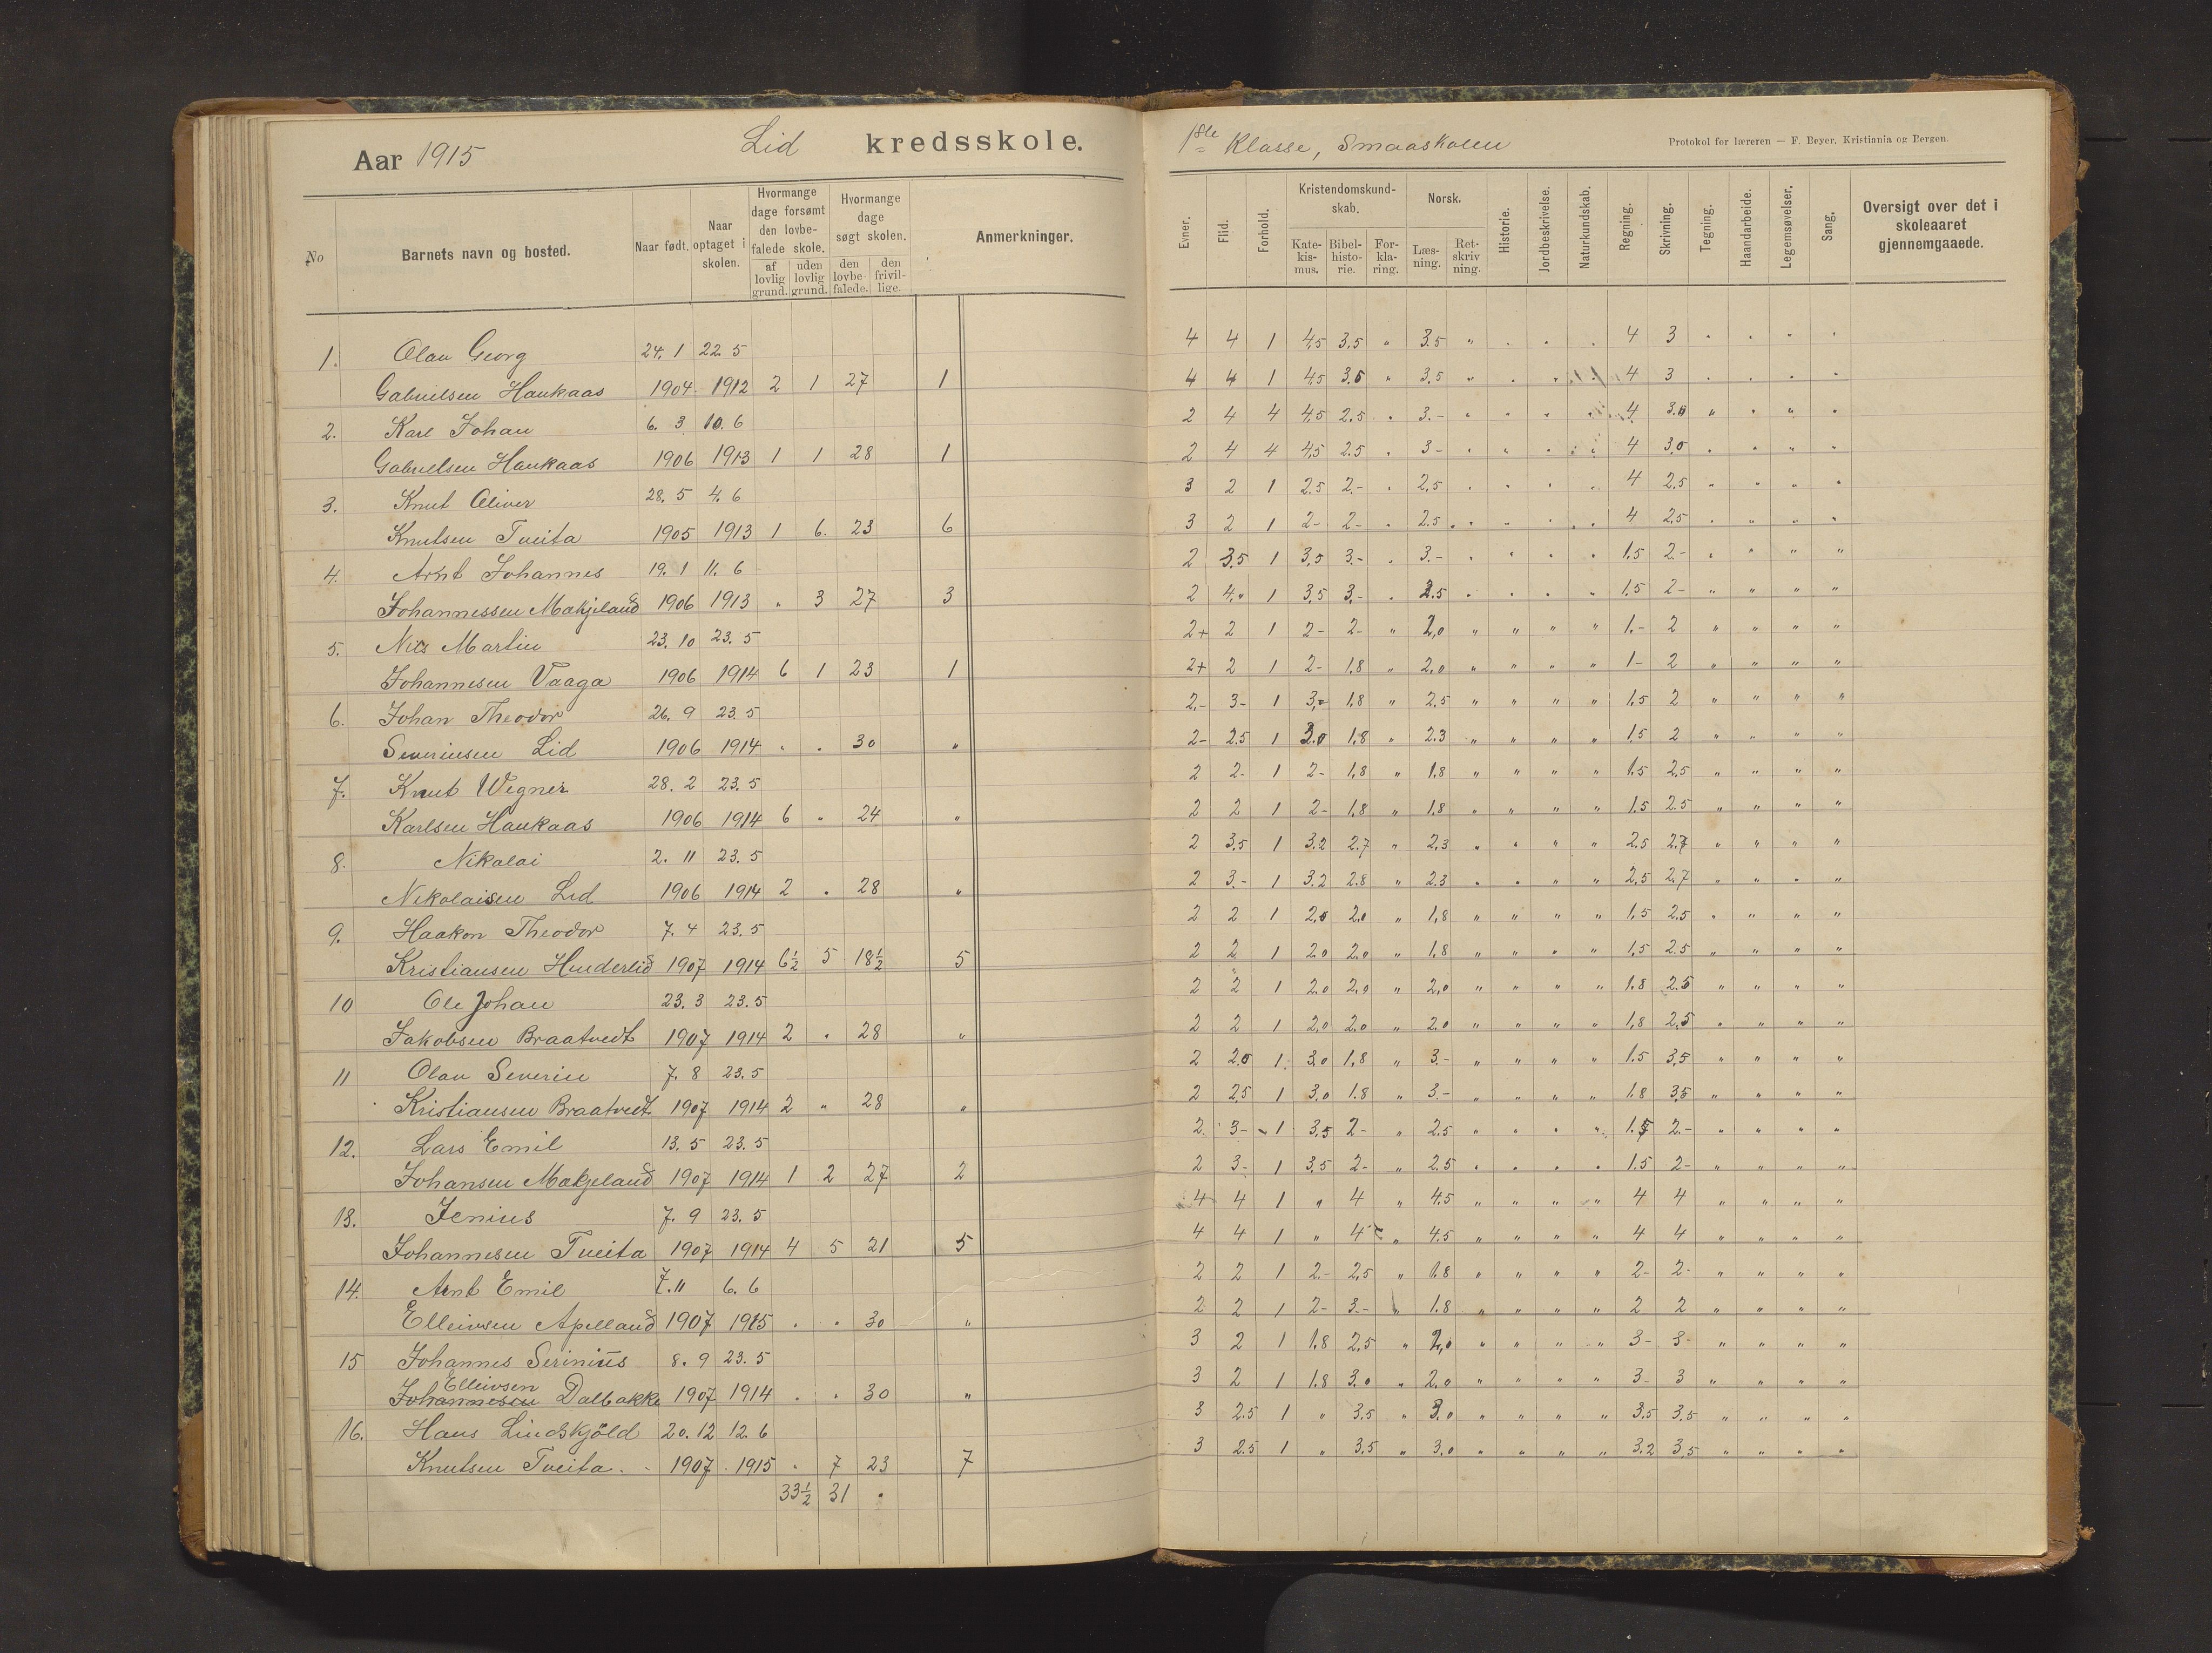 Aar 1915 Lid kredsskole.
No
Barnets navn og bosted.
Naar født.
Naar optaget i skolen.
Hvormange dage forsømt den lovbefalede skole.
af lovlig grund.
uden lovlig grund.
Hvormange dage søgt skolen.
den lovbefalede.
den frivillige.
Anmerkninger.
1. Olav Georg 24. 1 22. 5
Gabrielsen Haukaas 1904 1912 2 1 27 1
2. Karl Johan 6. 3 10. 6
Gabrielsen Haukaas 1906 1913 1 1 28 1
3. Knut Oliver 28. 5 4. 6
Knutsen Tveita 1905 1913 1 6. 23 6
4. Arnt Johannes 19. 1 11. 6
Johannessen Mækjeland 1906 1913 " 3 27 3
5. Nils Martin 23. 10 23. 5
Johannesen Vaaga 1906 1914 6 1 23 1
6. Johan Theodor 26. 9 23. 5
Severinsen Lid 1906 1914 " " 30 "
7. Knut Wegner 28. 2 23. 5
Karlsen Haukaas 1906 1914 6 " 24 "
8. Nikolai 2. 11 23. 5
Nikolaisen Lid 1906 1914 2 " 28 "
9. Haakon Theodor 7. 4 23. 5
Kristiansen Hinderlid 1907 1914 6½ 5 18½ 5
10 Ole Johan 23. 3 23. 5
Jakobsen Braatvedt 1907 1914 2 " 28 "
11 Olav Severin 7. 8 23. 5
Kristiansen Braatvedt 1907 1914 2 " 28 "
12. Lars Emil 13. 5 23. 5
Johansen Mækjeland 1907 1914 1 2 27 2
13. Jenius 7. 9 23. 5
Johannesen Tveita 1907 1914 4 5 21 5
14. Arnt Emil 7. 11 6. 6
Elleivsen Apelland 1907 1915 " " 30 "
15 Johannes Serinius 8. 9 23. 5
Elleivsen
Johannesen Dalbakke 1907 1914 " " 30 "
16. Hans Lindskjöld 20. 12 12. 6
Knutsen Tveita 1907 1915 " 7 23 7
33½ 31 "
1ste Klasse, Smaaskolen
Protokol for læreren — F. Beyer, Kristiania og Bergen.
Evner.
Flid.
Forhold.
Kristendomskundskab.
Katekismus.
Bibelhistorie.
Forklaring.
Norsk.
Læsning.
Retskrivning.
Historie.
Jordbeskrivelse.
Naturkundskab.
Regning.
Skrivning.
Tegning.
Haandarbeide.
Legemsøvelser.
Sang.
Oversigt over det i skoleaaret gjennemgaaede.
4 4 1 4,5 3,5 " 3.5 " " " " 4 3 " " " "
4 4 1 4,5 3,5 " 3,5 " " " " 4 3 " " " "
2 4 4 4,5 2.5 " 3.- " " " " 4 3.0 " " " "
2 4 4 4,5 2.5 " 3- " " " " 4 3,0 " " " "
3 2 1 2.5 2.- " 2,5 " " " " 4 2,5 " " " "
3 2 1 2- 2- " 2.5 " " " " 4 2,5 " " " "
2 3.5 1 3,5 3.- " 3.- " " " " 1,5 2.- " " " "
2 4." 1 3,5 3.- " 2.5 " " " " 1,5 2- " " " "
2+ 2 1 2- 2- " 2,0 " " " " 1.- 2 " " " "
2+ 2 1 2- 1,8 " 2,0 " " " " 1- 2 " " " "
2.- 3- 1 3,- 1,8 " 2,5 " " " " 1,5 2 " " " "
2- 2.5 1 3.0 1,8 " 2.3 " " " " 1,5 2 " " " "
2 2- 1 2- 1,8 " 1,8 " " " " 1,5 2,5 " " " "
2 2 1 2- 1,8 " 1,8 " " " " 1,5 2.5 " " " "
2 3,5 1 3.2 2.7 " 2,3 " " " " 2.5 2.7 " " " "
2 3.- 1 3.2 2.8 " 2.3 " " " " 2,5 2.7 " " " "
2 2 1 2,0 2.0 " 1,8 " " " " 1,5 2.5 " " " "
2 2 1 2.0 2.0 " 1,8 " " " " 1,5 2.5 " " " "
2 2 1 2.0 2,0 " 2,0 " " " " 1.8 2.5 " " " "
2 2 1 2,0 2.0 " 2.0 " " " " 1,8 2,5 " " " "
2 2,5 1 3.0 1,8 " 3.- " " " " 1.5 3,5 " " " "
2 2,5 1 3.0 1.8 " 3.- " " " " 1.8 3,5 " " " "
2 3- 1 3,5 2- " 2.5 " " " " 1.5 2.- " " " "
2 3- 1 3,5 2- " 2.5 " " " " 1.5 2- " " " "
4 4 1 " 4 " 4.5 " " " " 4 4 " " " "
4 4 1 " 4 " 4.5 " " " " 4 4 " " " "
2 2 1 2.- 2,5 " 1,8 " " " " 2- 2- " " " "
2 2 1 2- 3.- " 1.8 " " " " 2 2 " " " "
3 2 1 1.8 2,5 " 2,0 " " " " 3- 3- " " " "
3 2 1 1.8 3.0 " 2.0 " " " " 3- 3 " " " "
3 2.5 1 " 3,5 " 3.0 " " " " 3,5 3,5 " " " "
3 2.5 1 " 3,5 " 3,0 " " " " 3.2 3,5 " " " "